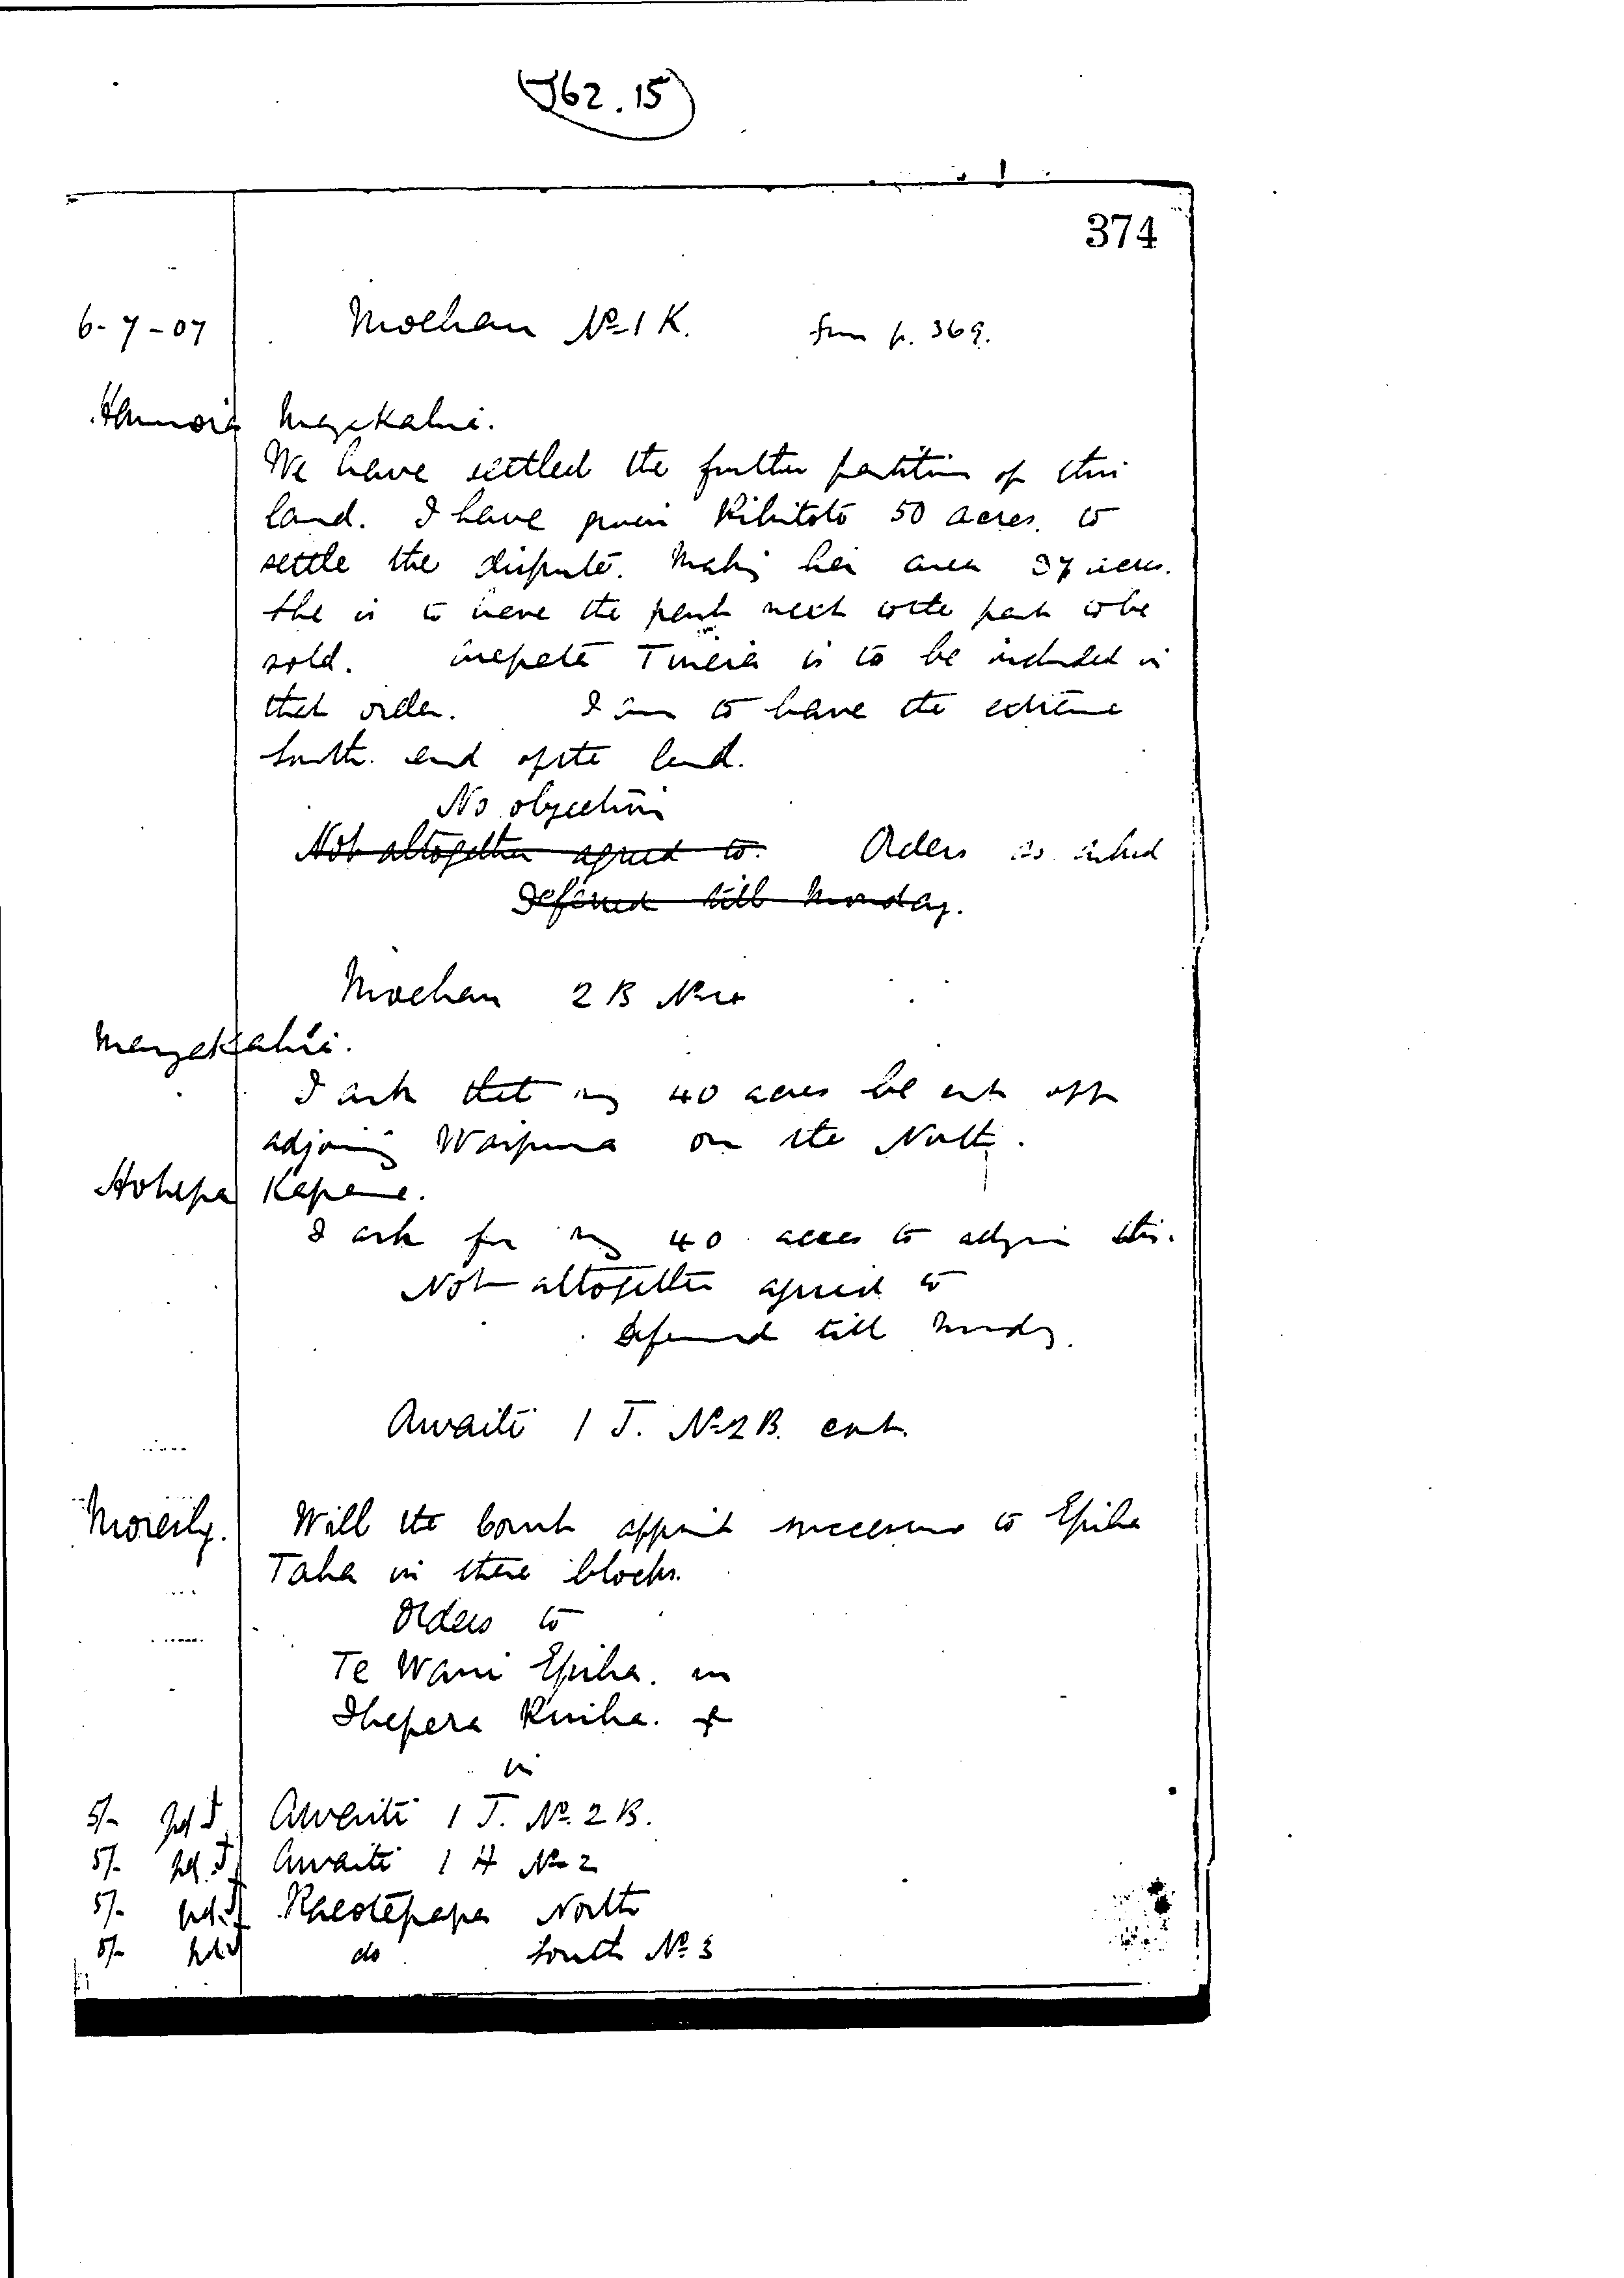 J62.15
374
6-7-07 Moehau No 1 K. from p. 369.
Hamiora Mangakahia.
We have settled the further partition of this
land. I have given Rihitoto 50 acres to
settle the dispute. Making her area acres.
She is to have the part next to the part to be
sold. is to be included in
that order. I am to have the extreme
South end of the land.
No objection
Not altogether agreed to. Orders as asked
Deferred till Monday.
Moehau 2 B No 4
Mangakahia.
I ask that my 40 acres be cut off
adjoining on the North.
Hohepa Kapene.
I ask for my 40 acres to adjoin this.
Not altogether agreed to
Deferred till Monday.
Awaiti 1 J. No 2 B.
Will the Court appoint successors to Epiha
Taha in these blocks.
Orders to
Te Wani Epiha.
Ihepera
in
5/- pd Awaiti 1 J. No. 2 B.
5/- pd Awaiti 1 H No 2
5/- pd North
5/- pd do South No 3